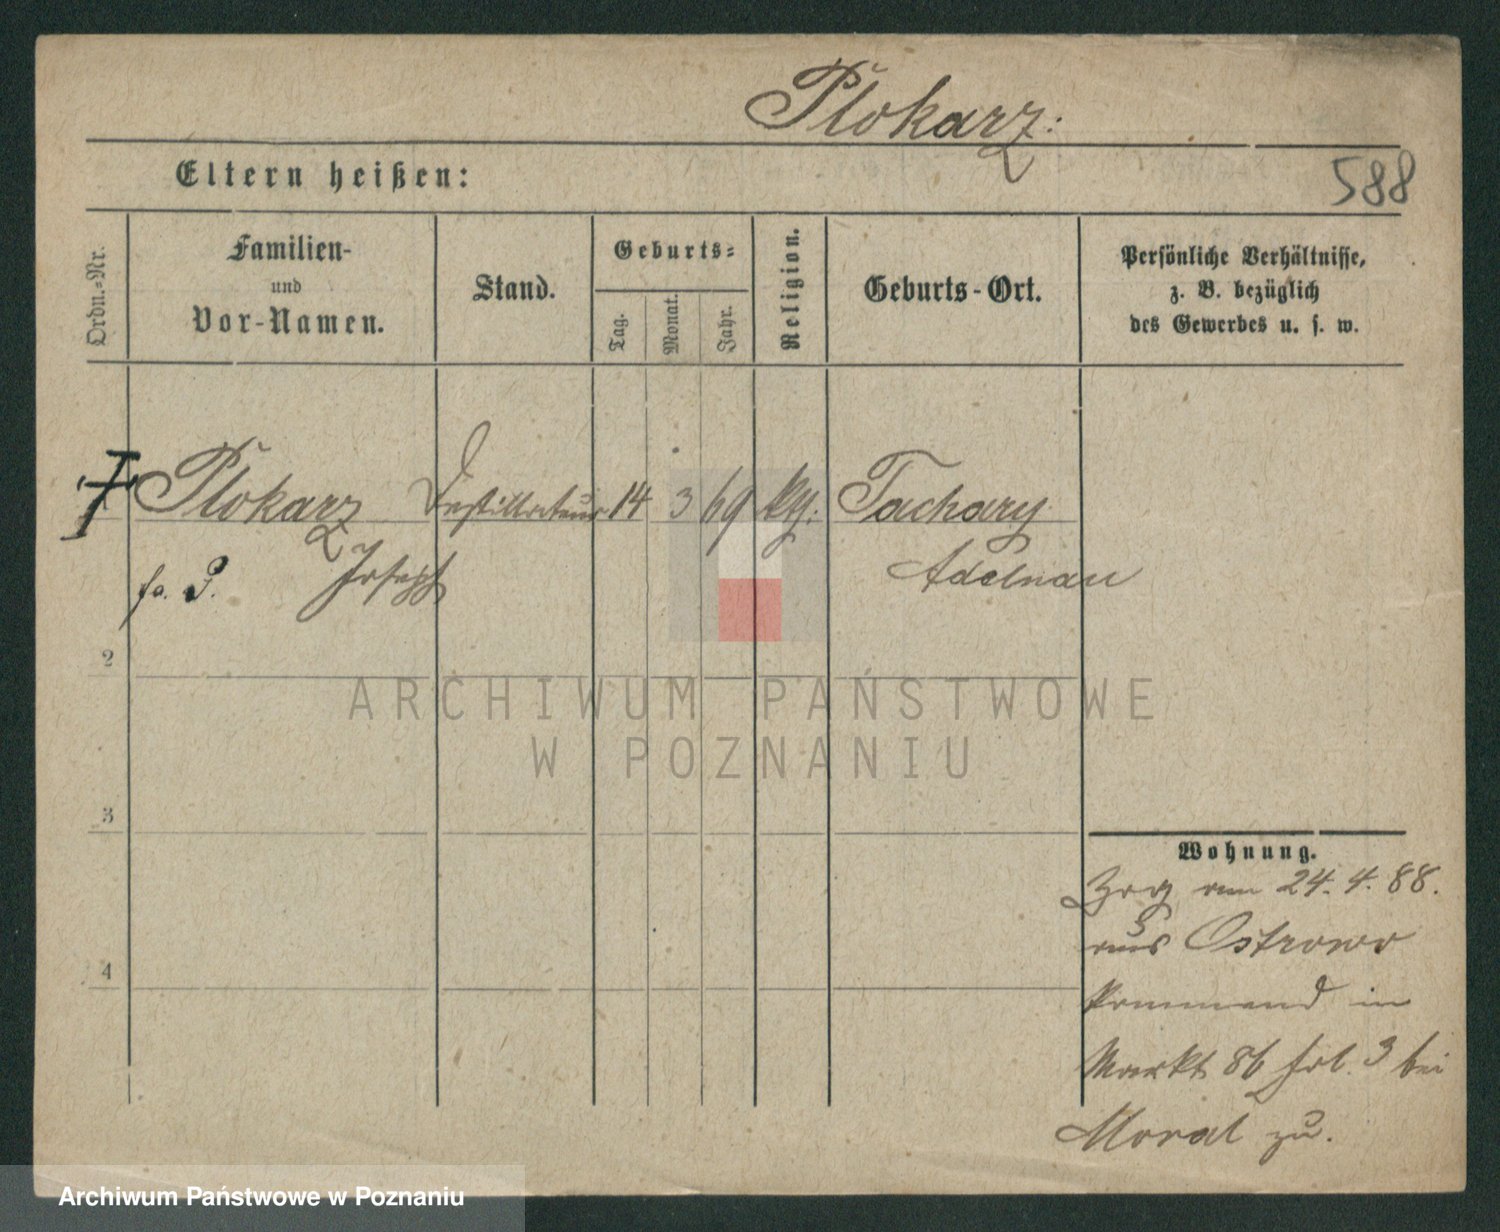 Plokarz:
588
Eltern heißen:
Ordn.-Nr.
Familien-
und
Vor-Namen.
Stand.
Geburts-
Tag.
Monat.
Jahr.
Religion.
Geburts-Ort.
Persönliche Verhältnisse,
z. B. bezüglich
des Gewerbes u. s. w.
Plokarz Destillateur 14 3 69 Tachary
Joseph Adelnau
2
3
4
Wohnung.
am 24. 4. 88.
aus Ostrowo
kommend in
Markt 86 bei
Moral zu.
ARCHIWUM PAŃSTWOWE
W POZNANIU
Archiwum Państwowe w Poznaniu